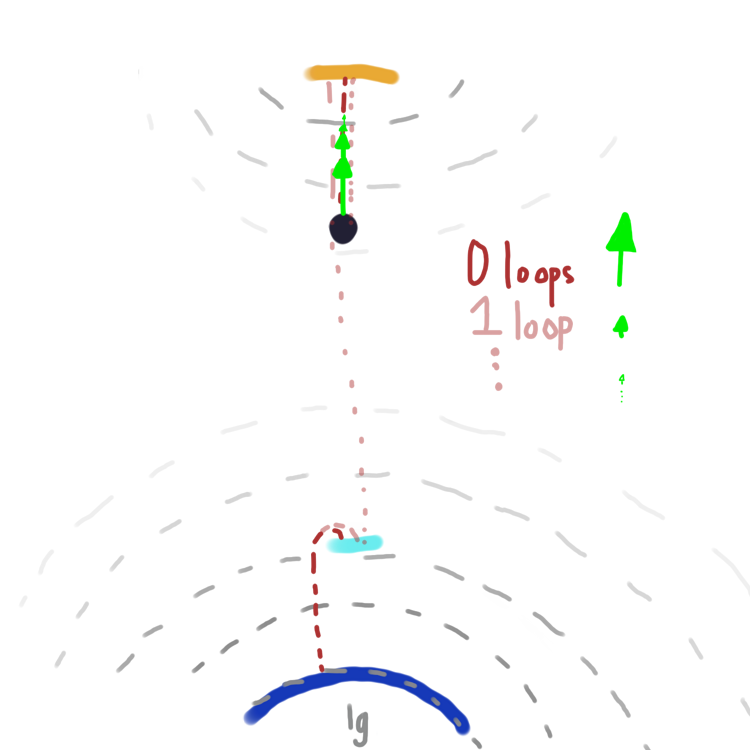 0 loops
1 loop
1g